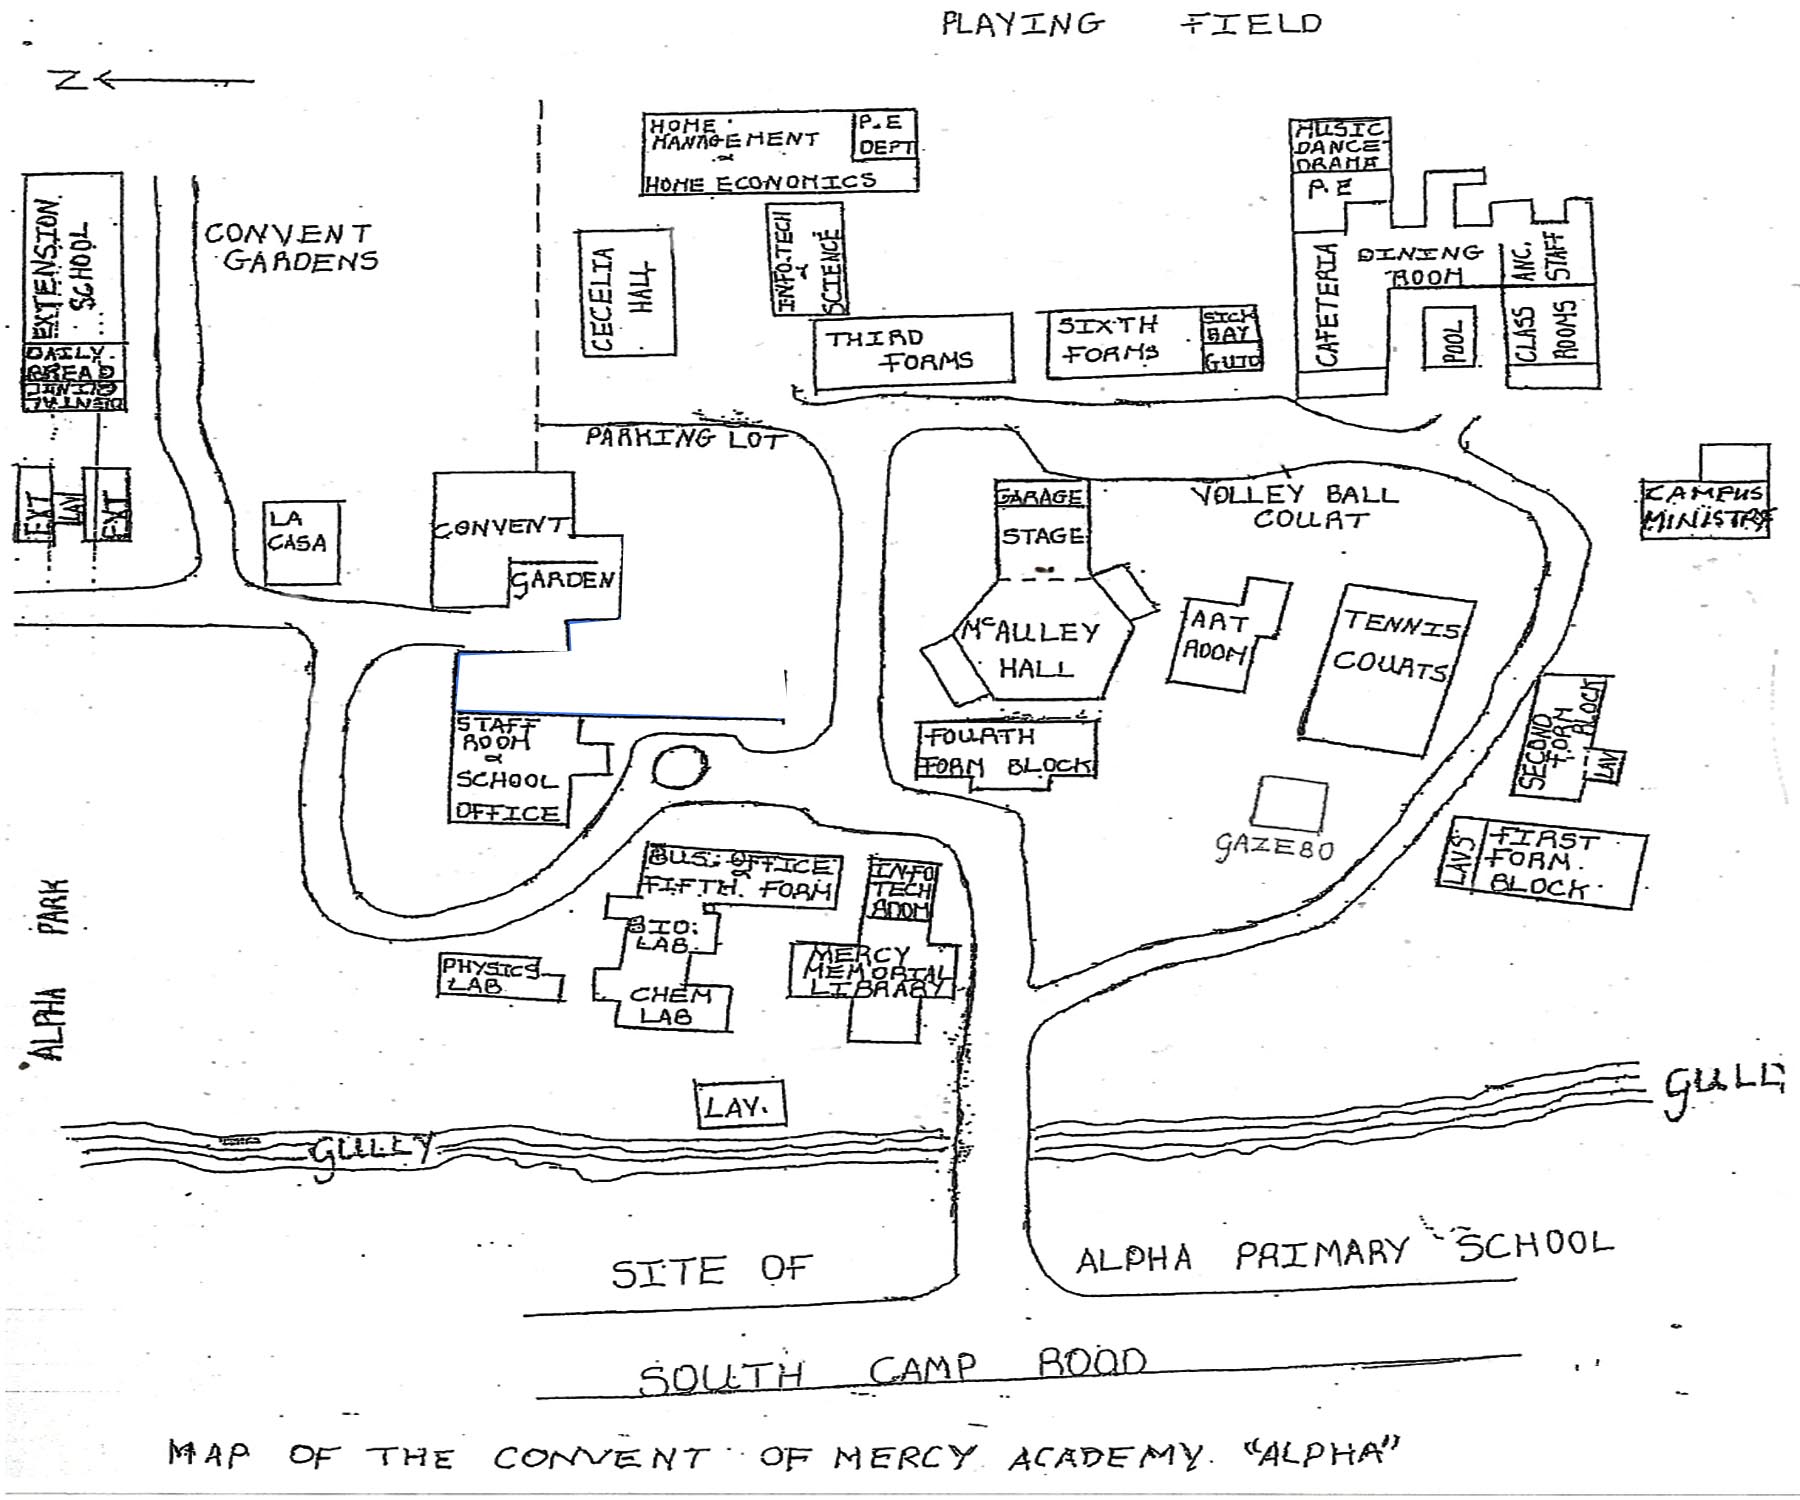 PLAYING FIELD
N
HOME
MANAGEMENT
&
HOME ECONOMICS
P.E
DEPT
MUSIC
DANCE
DRAMA
P.E
EXTENSION
SCHOOL
DAILY
BREAD
DINING
DENTAL
CONVENT
GARDENS
CECELIA
HALL
INFO.TECH
&
SCIENCE
THIRD
FORMS
SIXTH
FORMS
SICK
BAY
GUID
CAFETERIA
DINING
ROOM
ANC.
STAFF
POOL
CLASS
ROOMS
PARKING LOT
EXT
LAV
EXT
LA
CASA
CONVENT
GARDEN
GARAGE
STAGE
VOLLEY BALL
COURT
CAMPUS
MINISTRY
McAULLEY
HALL
ART
ROOM
TENNIS
COURTS
STAFF
ROOM
&
SCHOOL
OFFICE
FOURTH
FORM BLOCK
SECOND
FORM
BLOCK
LAV
GAZEBO
LAVS
FIRST
FORM.
BLOCK
BUS. OFFICE
&
FIFTH. FORM
INFO
TECH
ROOM
BIO.
LAB
PHYSICS
LAB
CHEM
LAB
MERCY
MEMORIAL
LIBRARY
ALPHA PARK
LAV.
GULLY
GULLY
SITE OF
ALPHA PRIMARY SCHOOL
SOUTH CAMP ROAD
MAP OF THE CONVENT OF MERCY ACADEMY. "ALPHA"